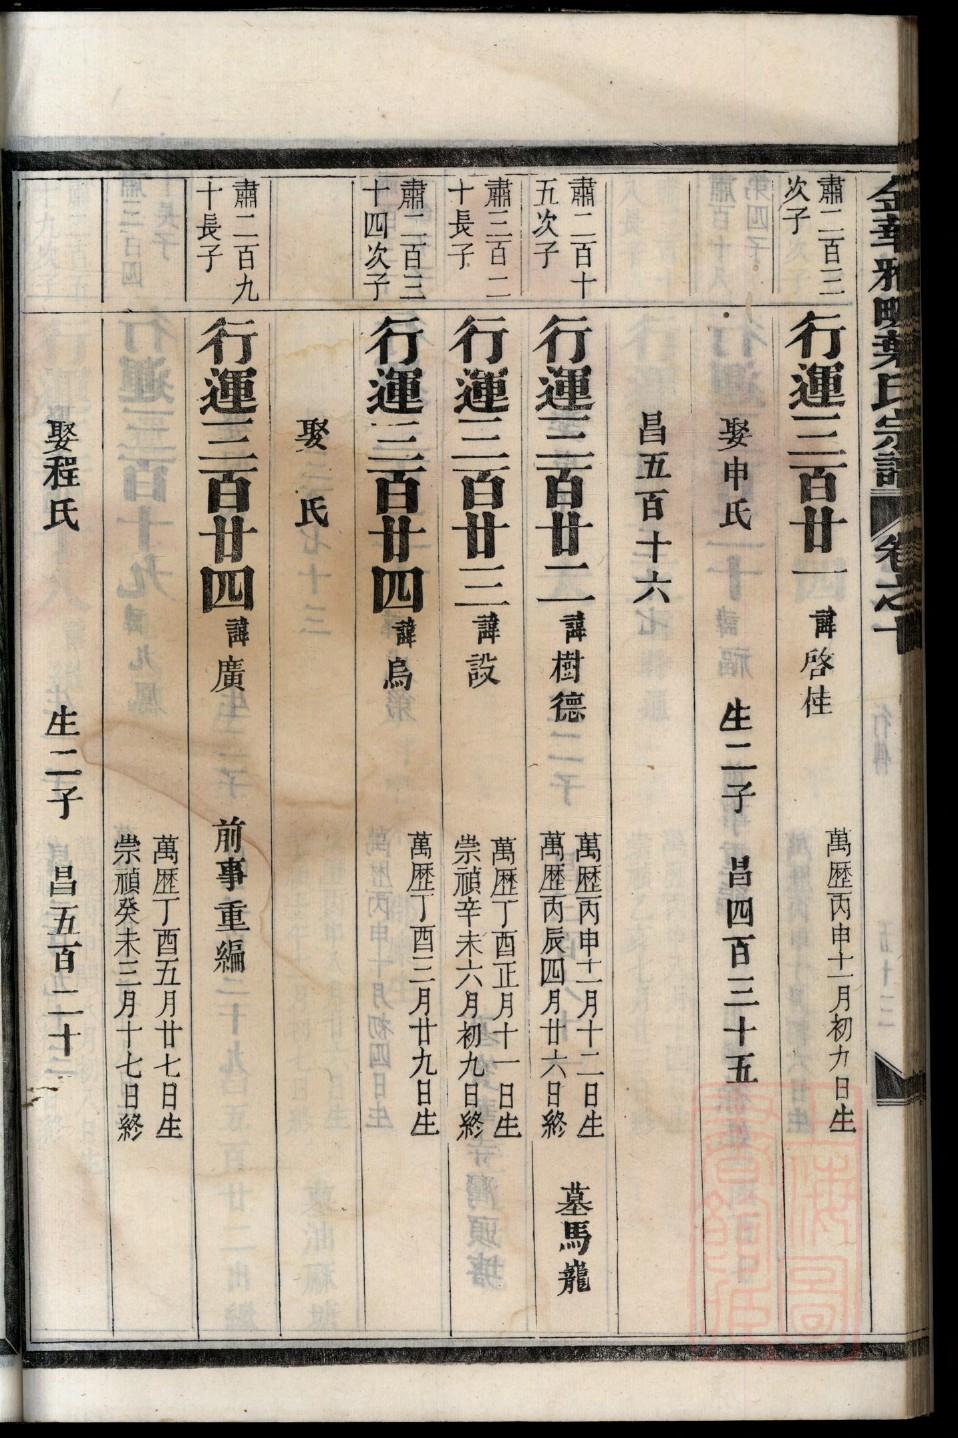 金華雅畈葉氏宗譜 卷之
肅二百三
次子
行運三百廿一 諱啓佳 萬歷丙申十一月初九日生
娶申氏 生二子 昌四百三十五
昌五百十六
肅二百十
五次子
行運三百廿二 諱樹德 萬歷丙申十一月十二日生
萬歷丙辰四月廿六日終 墓馬龍
肅三百二
十長子
行運三百廿三 諱設 萬歷丁酉正月十一日生
崇禎辛未六月初九日終
肅二百三
十四次子
行運三百廿四 諱烏 萬歷丁酉三月廿九日生
娶 氏
肅二百九
十長子
行運三百廿四 諱廣 前事重編
萬歷丁酉五月廿七日生
崇禎癸未三月十七日終
娶程氏 生二子 昌五百二十